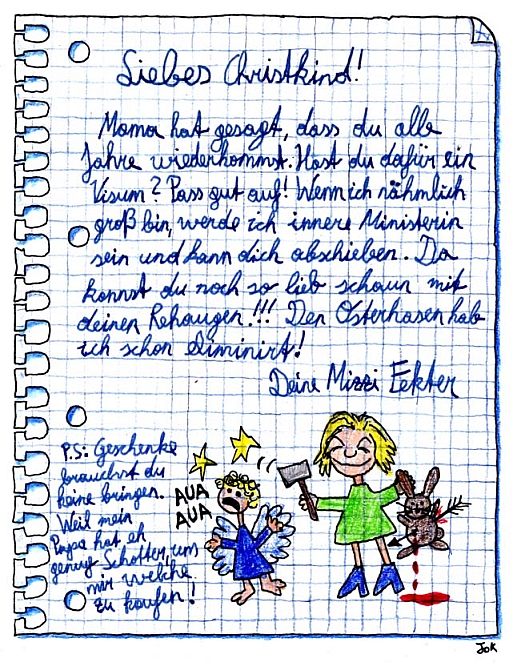 Liebes Christkind!
Mama hat gesagt, dass du alle
Jahre wiederkommst. Hast du dafür ein
Visum? Pass gut auf! Wenn ich nähmlich
groß bin, werde ich innere Ministerin
sein und kann dich abschieben. Da
kannst du noch so lieb schaun mit
deinen Rehaugen!!! Den Osterhasen hab
ich schon eliminirt!
Deine Mizzi Eekter
P.S: Geschenke
brauchst du
keine bringen.
Weil mein
Papa hat eh
genug Schotter, um
mir welche
zu kaufen!
AUA
AUA
JOK